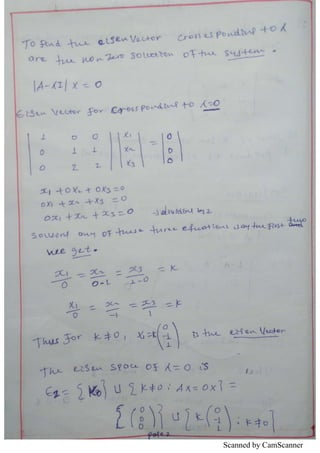 To find the eisen Vector Corresponding to λ
are the non zero solution of the system.
|A-λI| X = 0
Eisen Vector for Corresponding to λ=0
| 1 0 0 | | x1 | | 0 |
| 0 1 1 | | x2 | = | 0 |
| 0 2 2 | | x3 | | 0 |
x1 + 0x2 + 0x3 = 0
0x1 + x2 + x3 = 0
0x1 + x2 + x3 = 0 → dividing by 2
Solvent any of these three equations say the first two
we get.
x1/0 = x2/0-1 = x3/1-0 = k
x1/0 = x2/-1 = x3/1 = k
Thus for k≠0, = k (0 -1 1) is the eisen Vector
The eisen space of λ=0 is
= { } U { k≠0 : AX = 0X } =
{ (0 0 0) } U { k (0 -1 1) : k≠0 }
Scanned by CamScanner